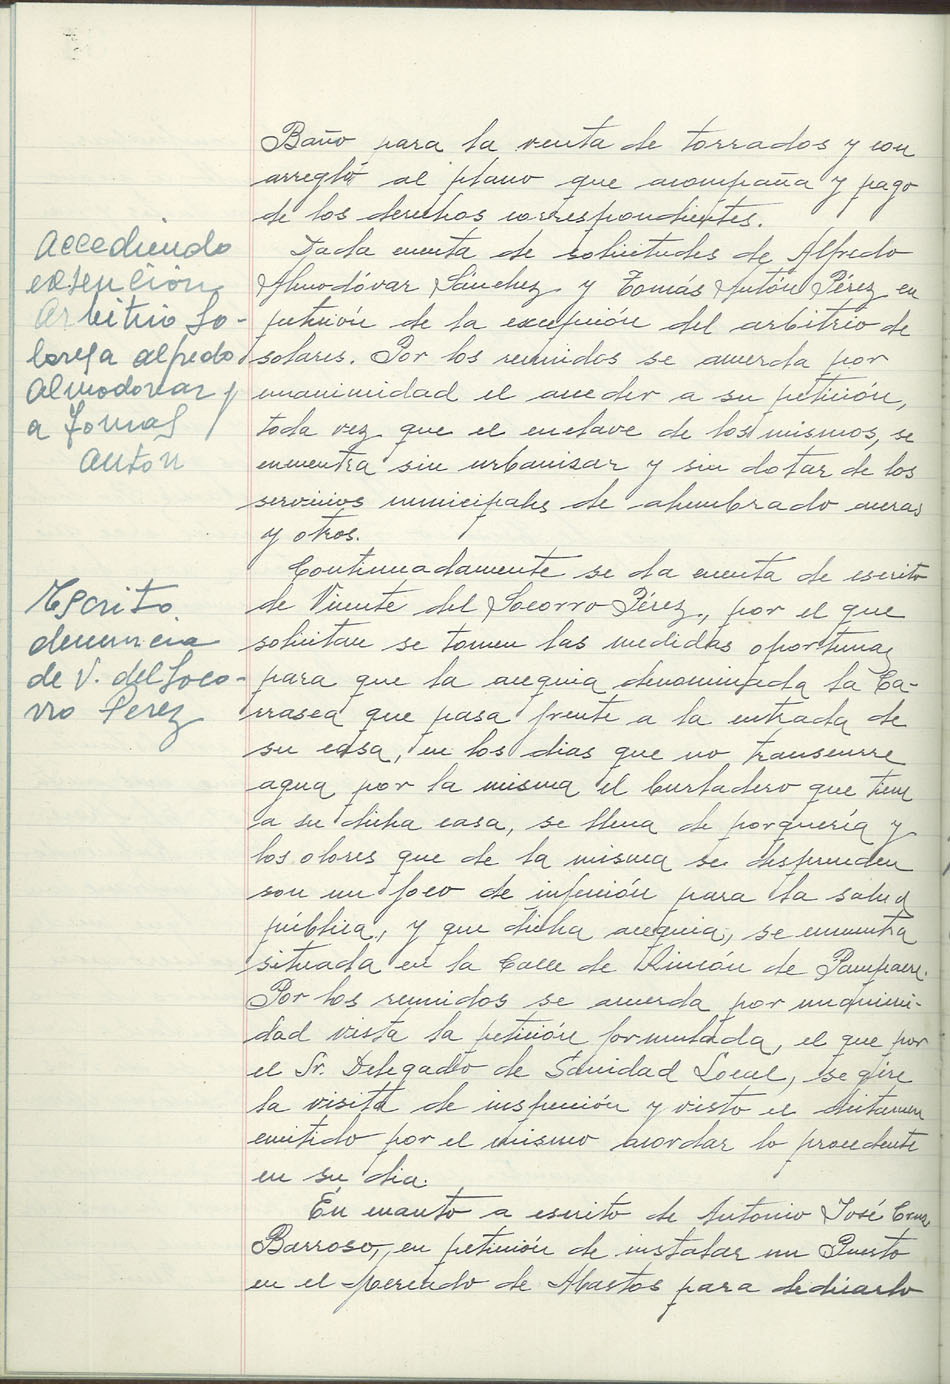 Baño para la venta de torrados y con
arreglo al plano que acompaña y pago
de los derechos correspondientes.
Accediendo
extención
Arbitrio So-
lares a alfredo
Almodovar y
a Tomas
Antón
Dada cuenta de solicitudes de Alfredo
Almodóvar Sánchez y Tomás Antón Pérez en
petición de la excepción del arbitrio de
solares. Por los reunidos se acuerda por
unanimidad el acceder a su petición,
toda vez que el enclave de los mismos, se
encuentra sin urbanizar y sin dotar de los
servicios municipales de alumbrado aceras
y otros.
Escrito
denuncia
de V. del Soco-
rro Perez
Continuadamente se da cuenta de escrito
de Vicente del Socorro Pérez, por el que
solicitan se tomen las medidas oportunas
para que la acequia denominada la Ca-
rrasca que pasa frente a la entrada de
su casa, en los dias que no transcurre
agua por la misma el burladero que tiene
a su dicha casa, se llena de porquería y
los olores que de la misma se desprenden
son un foco de infección para la salud
pública, y que dicha acequia, se encuentra
situada en la Calle de Rincón de
Por los reunidos se acuerda por unanimi-
dad vista la petición formulada, el que por
el Sr. Delegado de Sanidad Local, se gire
la visita de inspección y visto el dictamen
emitido por el mismo acordar lo procedente
en su dia.
En cuanto a escrito de Antonio José Cruz
Barroso, en petición de instalar un Puesto
en el Mercado de Abastos para dedicarlo